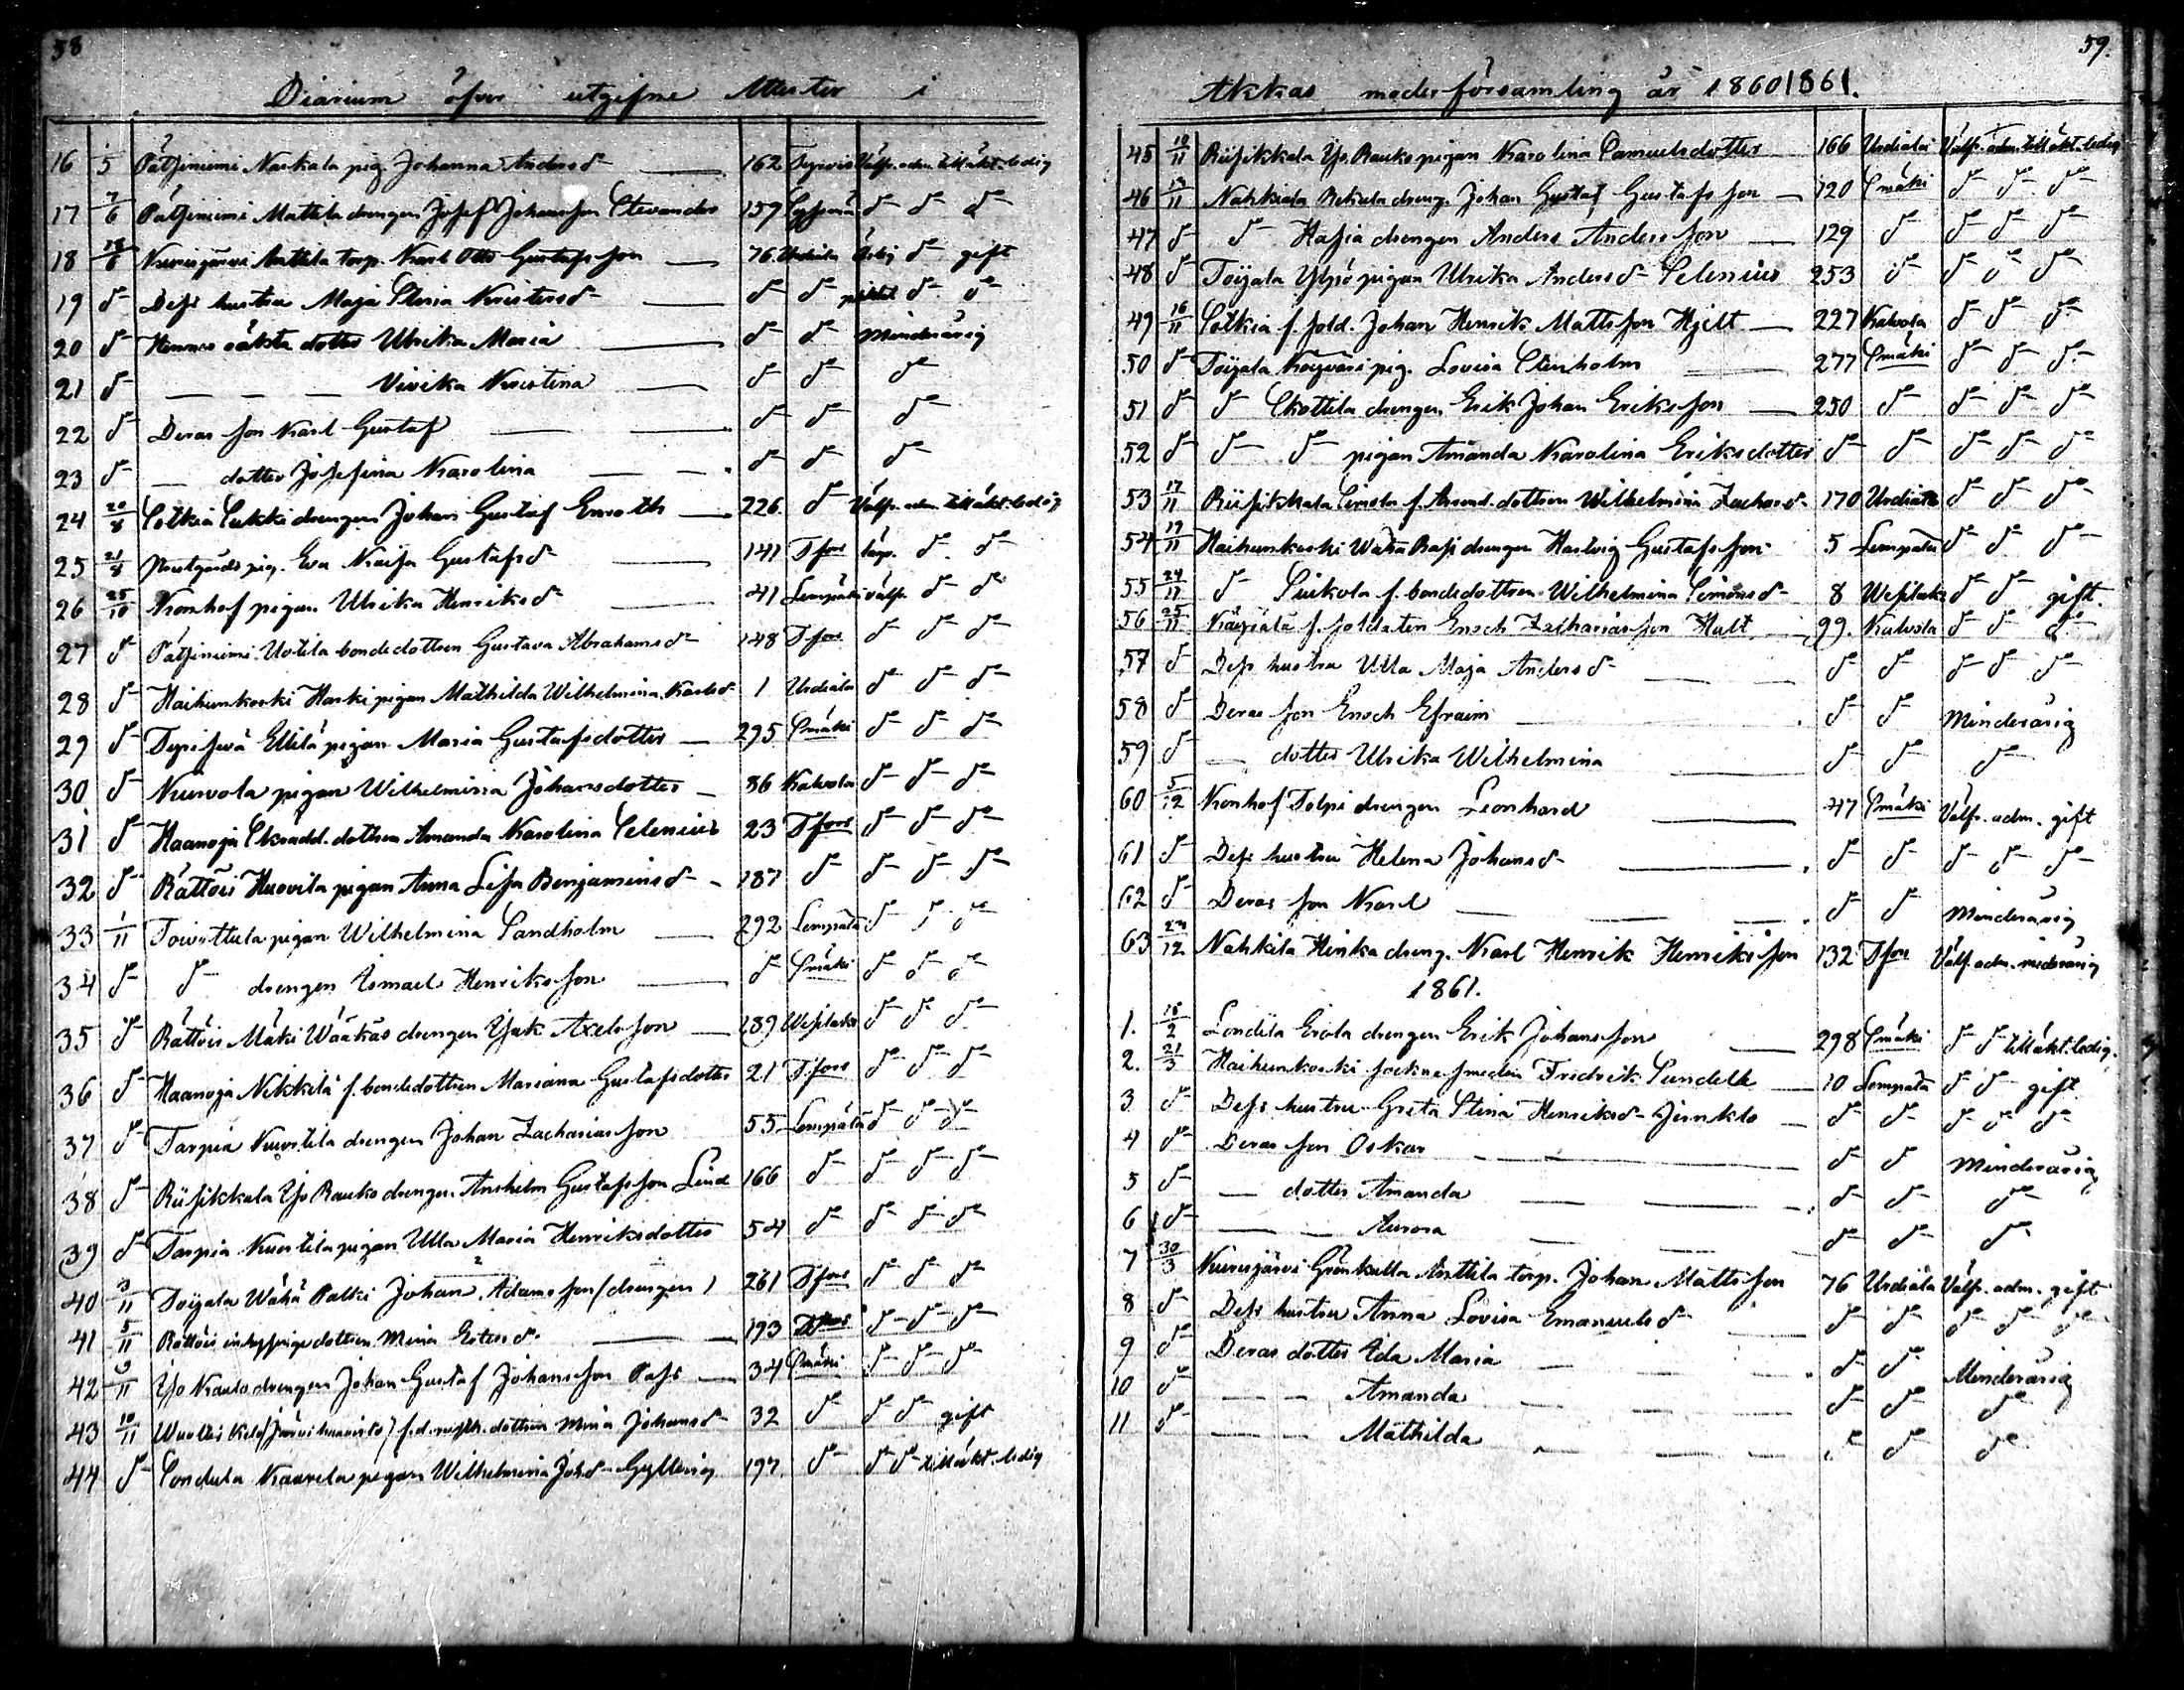 58
Diarium öfver utgifne Attester i
16 5 Pätsiniemi Naskala pig. Johanna Anders d– 162 Tyrvis Välfr. adm. till äkt. ledig
17 7/6 Pätsiniemi Mattila drengen Josef Johansson Stevander 157 d– d– d–
18 18/8 Kurisjärvi Anttila torp. Karl Otto Gustafsson 76 Urdiala d– gift
19 d– Dess hustru Maja Stina Kristers d– d– d– d– d–
20 d– Hennes oäkta dotter Ulrika Maria d– d– Minderårig
21 d– — — — Vivika Kristina d– d– d–
22 d– Deras son Karl Gustaf d– d– d–
23 d– — dotter Josefina Karolina d– d– d–
24 20/8 Sotkia Sukki drengen Johan Gustaf Enroth 226 d– Välfr. adm. till äkt. ledig
25 21/8 pig. Eva Kaisa Gustafs d– 141 Tfors d– d–
26 25/10 Kronhof pigan Ulrika Henriks d– 41 Lempälä välfr d– d–
27 d– Pätsiniemi Uotila bondedottren Gustava Abrahams d– 148 Tfors d– d– d–
28 d– Haihunkoski Haski pigan Mathilda Wilhelmina Karls d– 1 Urdiala d– d– d–
29 d– Ellilä pigan Maria Gustafsdotter — 295 Smäki d– d– d–
30 d– Kurvola pigan Wilhelmina Johansdotter — 86 Kalvola d– d– d–
31 d– Haanoja Skrädd. dottren Amanda Karolina Selenius 23 Tfors d– d– d–
32 d– Rättöis Huovila pigan Anna Lisa Benjamins d– 187 d– d– d– d–
33 1/11 Toivottula pigan Wilhelmina Sandholm 292 Lempälä d– d– d–
34 d– d– drengen Ismael Henriksson d– Smäki d– d– d–
35 d– Rättöis Mäki Wääkäs drengen Isak Axelsson 189 Wesilaks d– d– d–
36 d– Haanoja Nikkilä f. bondedottren Mariana Gustafsdotter 21 Tfors d– d– d–
37 d– Tarpia Kurstila drengen Johan Zachariasson 55 Lempälä d– d– d–
38 d– Riisikkala Yso Rauko drengen Anshelm Gustafsson Lind 166 d– d– d– d–
39 d– Tarpia Kurstila pigan Ulla Maria Henriksdotter 54 d– d– d– d–
40 3/11 Toijala Wähä Palki Johan Adamsson (drengen) 261 Tfors d– d– d–
41 5/11 Rättöis inhysinge dottren Mina d– 193 d– d– d–
42 9/11 Yso Kauko drengen Johan Gustaf Johansson Pass 34 Smäki d– d– d–
43 10/11 dottren Mina Johans d– 32 d– d– d– gift
44 d– Sondula Kaarela pigan Wilhelmina Joh. d– Gylling 197 d– d– d– till äkt. ledig
59.
Akkas moderförsamling år 1860 1861.
45 10/11 Riisikkala Yso Rauko pigan Karolina Samuelsdotter 166 Urdiala Välfr. adm. till äkt. ledig
46 13/11 Nahkiala dreng. Johan Gustaf Gustafsson — 120 Smäki d– d– d–
47 d– d– Hasia drengen Anders Andersson 129 d– d– d– d–
48 d– Toijala Ylpö pigan Ulrika Anders d– Selenius 253 d– d– d– d–
49 16/11 Sotkia f. sold. Johan Henrik Mattsson Hjelt — 227 Kalvola d– d– d–
50 d– Toijala pig. Lovisa Stenholm 277 Smäki d– d– d–
51 d– d– Skottila drengen Erik Johan Eriksson 250 d– d– d– d–
52 d– d– d– pigan Amanda Karolina Eriksdotter d– d– d– d– d–
53 17/11 Riisikkala Simola f. dottren Wilhelmina Zachar. d– 170 Urdiala d– d– d–
54 19/11 Haihunkoski Wähä Rasi drengen Hartvig Gustafsson 5 Lempälä d– d– d–
55 24/11 d– Suikola f. bondedottren Wilhelmina Simons d– 8 Wesilaks d– d– gift.
56 25/11 f. soldaten Enoch Zachariasson Hult 99. Kalvola d– d– d–
57 d– Dess hustru Ulla Maja Anders d– d– d– d– d– d–
58 d– Deras son Enoch Efraim d– d– Minderårig
59 d– — dotter Ulrika Wilhelmina d– d– d–
60 5/12 Kronhof Tolpi drengen Leonhard 47 Smäki Välfr. adm. gift
61 d– Dess hustru Helena Johans d– d– d– d– d– d–
62 d– Deras son Karl d– d– Minderårig
63 24/12 Nahkila Hinka dreng. Karl Henrik Henriksson 132 Tfors Välfr. adm. mederårig
1861.
1. 18/2 Londila Erola drengen Erik Johansson 298 Smäki d– d– till äkt. ledig.
2. 21/3 Haihunkoski sockne smeden Fridrik Sundell — 10 Lempälä d– d– gift
3 d– Dess hustru Greta Stina Henriks d– d– d– d– d– d–
4 d– Deras son Oskar d– d– Minderårig
5 d– — dotter Amanda d– d– d–
6 d– — — Aurora d– d– d–
7 30/3 Kurisjärvi Grönkulla Anttila torp. Johan Mattsson 76 Urdiala Välfr. adm. gift
8 d– Dess hustru Anna Lovisa Emanuels d– d– d– d– d– d–
9 d– Deras dotter Ida Maria d– d– Minderårig
10 d– — — Amanda d– d– d–
11 d– — — Mathilda d– d– d–